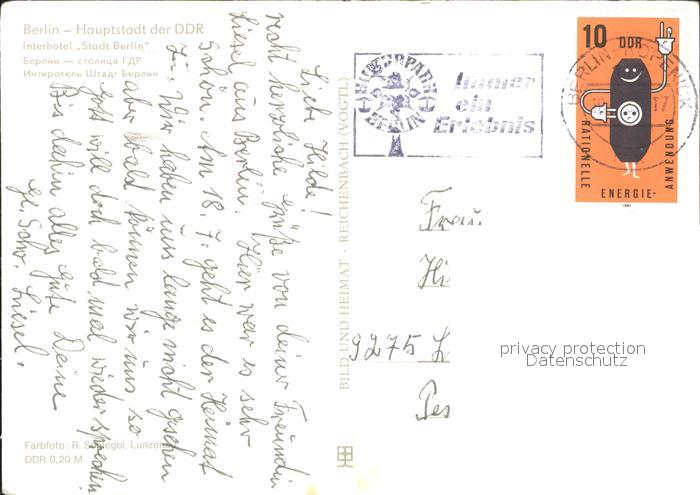 Berlin – Hauptstadt der DDR
Interhotel „Stadt Berlin"
Берлин — столица ГДР
Интеротель Штадт Берлин
Liebe Hilde!
recht herzliche Grüße von deiner Freundin
Liesel aus Berlin. Hier war es sehr
schön. Am 18.7. geht es der Heimat
zu. Wir haben uns lange nicht gesehen
aber bald können wir uns so
Gott will doch bald mal wieder sprechen.
Bis dahin alles gute Deine
Liesel.
Farbfoto: R. Schlegel, Lunzenau
DDR 0,20 M
BILD UND HEIMAT · REICHENBACH (VOGTL)
TIERPARK
BERLIN
Immer
ein
Erlebnis
BERLIN
10 DDR
RATIONELLE
ENERGIE-
ANWENDUNG
1981
Frau
Hi
9275 L
privacy protection
Datenschutz